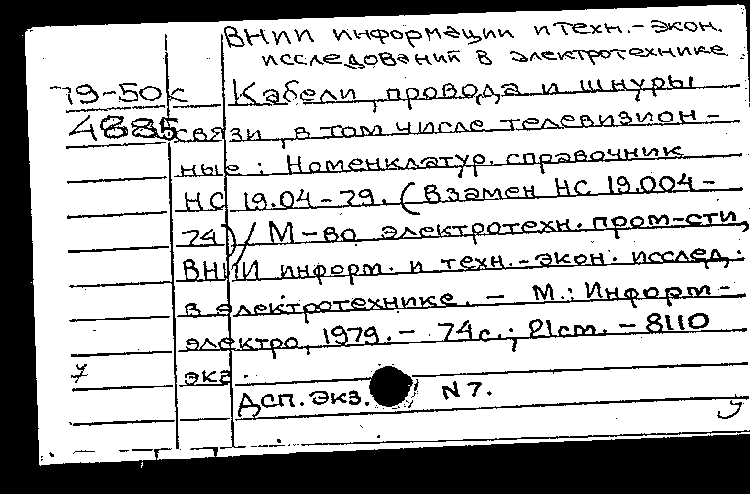 ВНИИ информации и техн.-экон.
исследований в электротехнике
79-50к Кабели, провода и шнуры
4885 связи, в том числе телевизион-
ные: Номенклатур. справочник
НС 19.04-79. (Взамен НС 19.004-
74) / М-во электротехн. пром-сти,
ВНИИ информ. и техн.-экон. исслед.
в электротехнике. - М.: Информ-
электро, 1979. - 74с.; 21см. - 8110
7 экз.
Дсп. Экз. N 7.